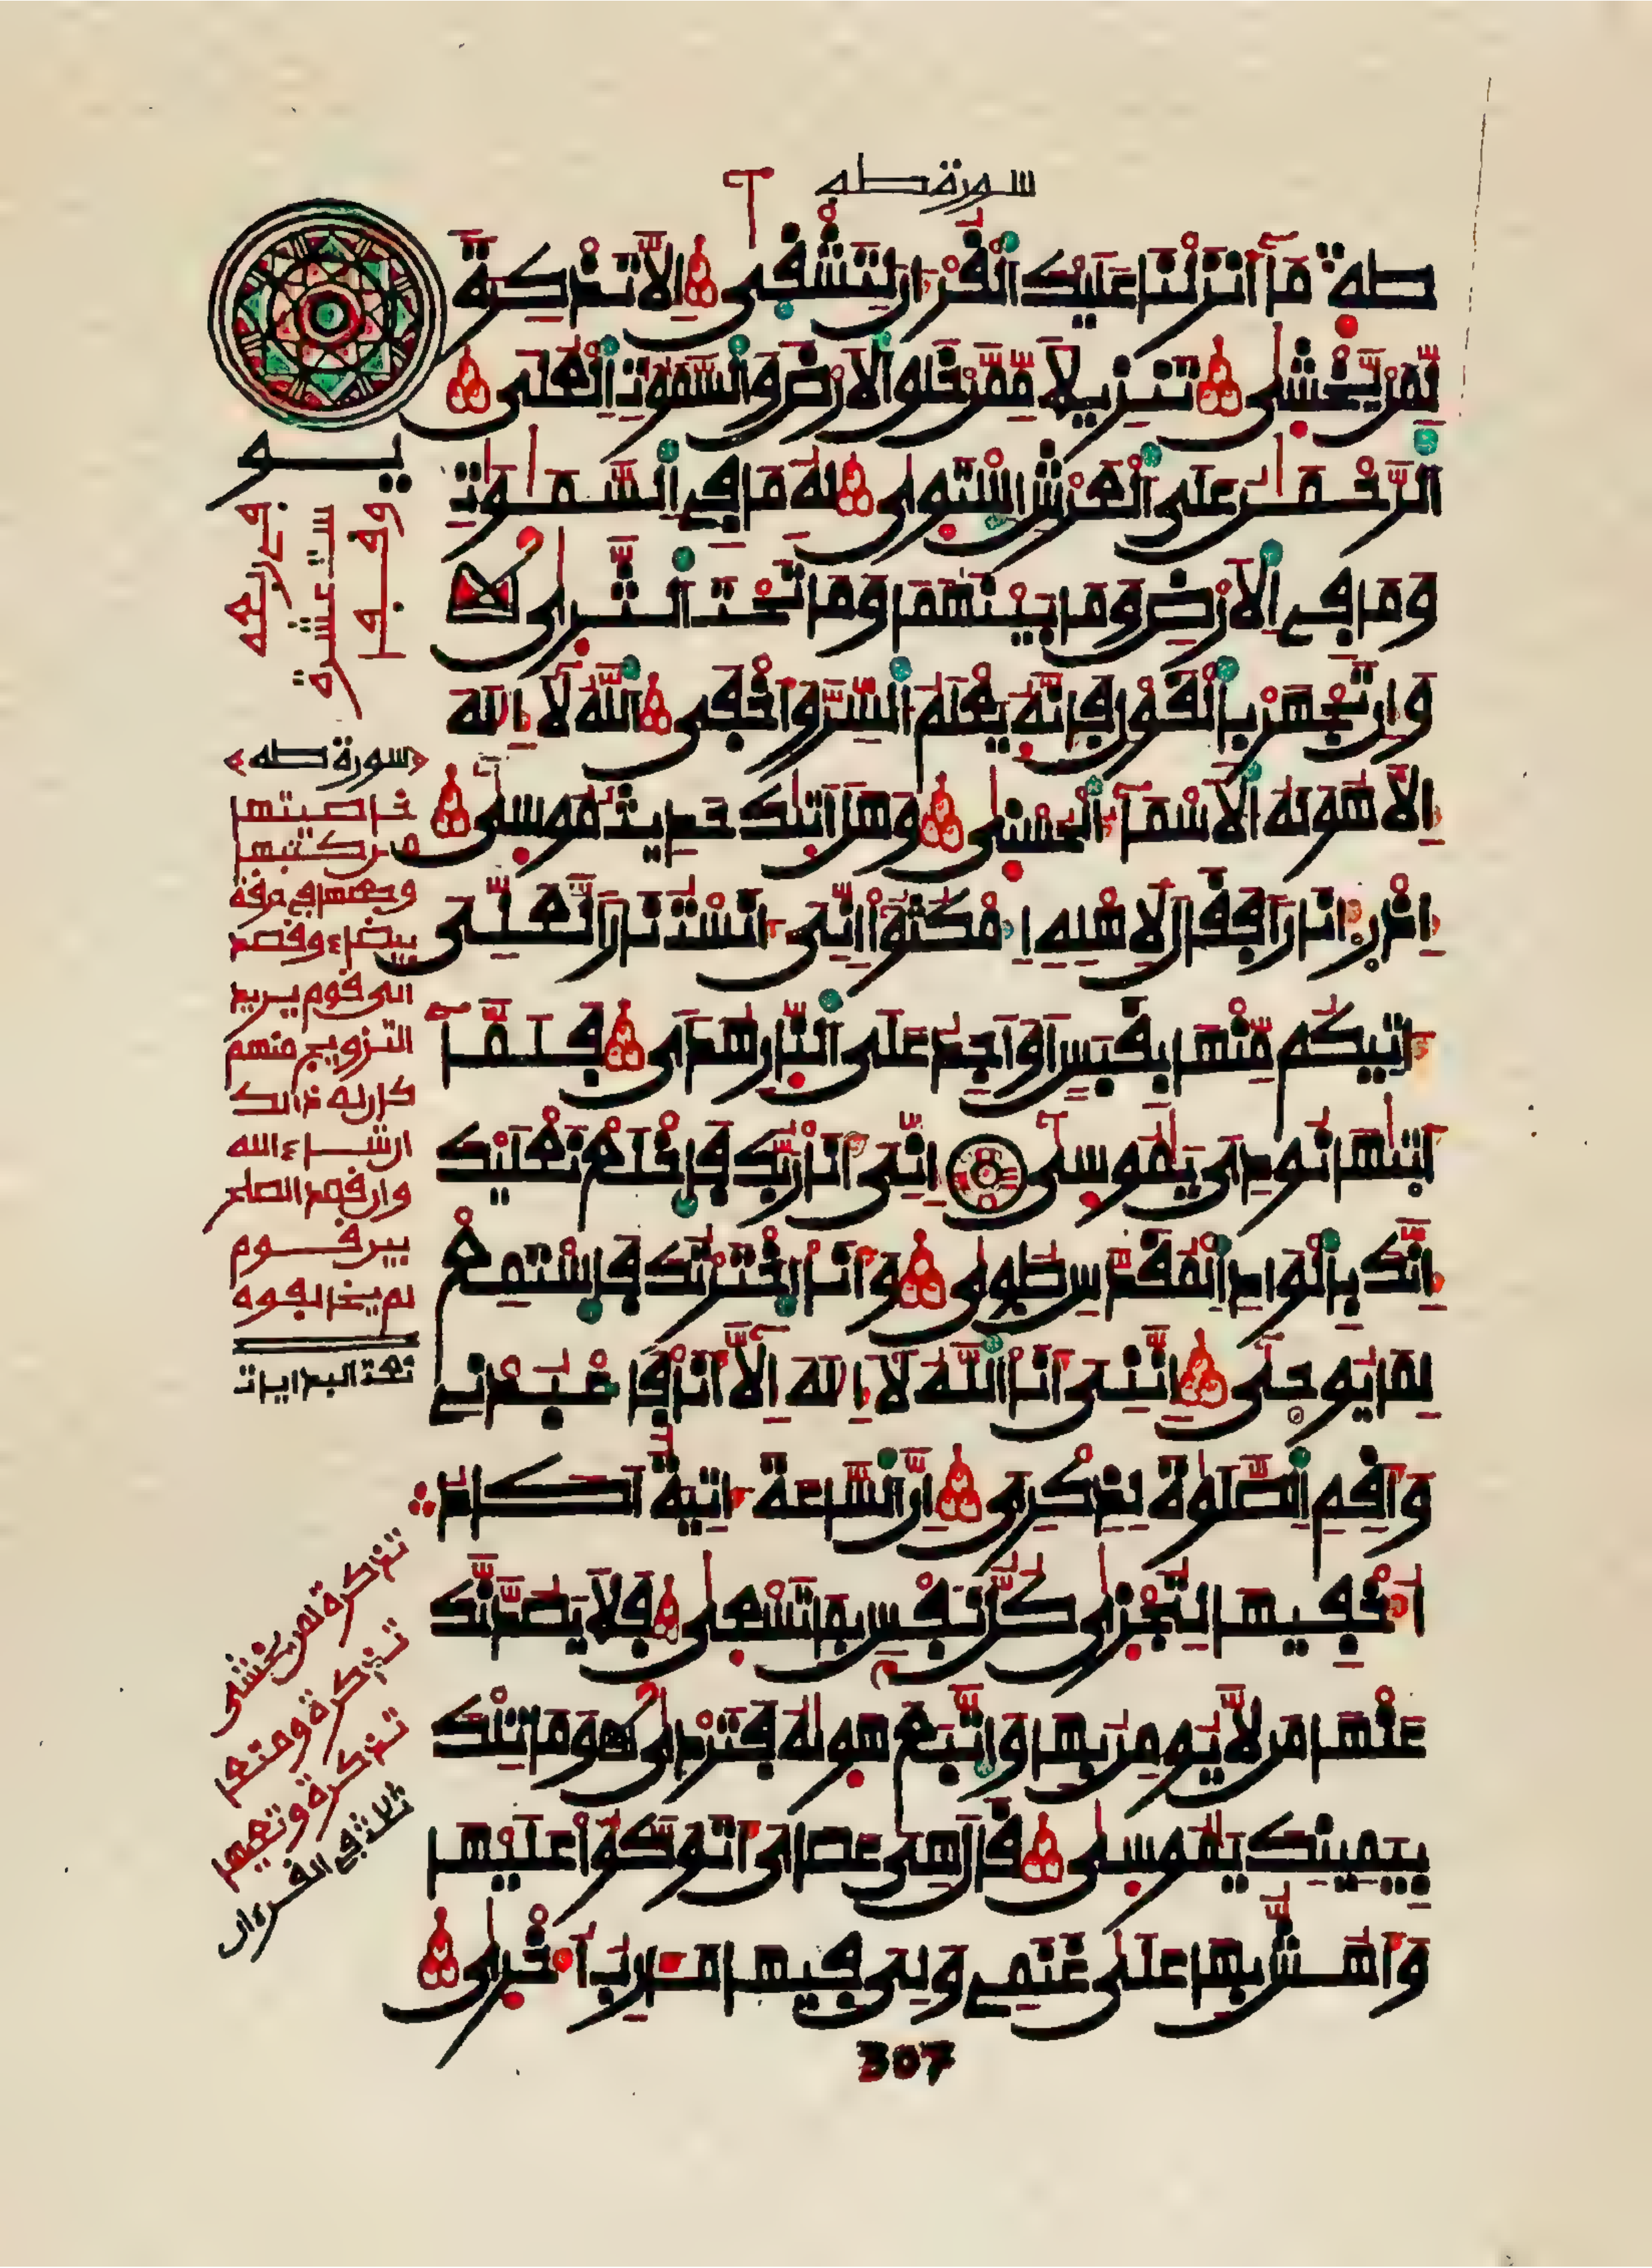 سورة طه
طه مَآ أنزلنا عليك القرءان لتشقى إلا تذكرة
لمن يخشى تنزيلا ممن خلق الارض والسموت العلى
الرحمن على العرش استوى له ما في السموت
وما في الارض وما بينهما وما تحت الثرى
وإن تجهر بالقول فإنه يعلم السر وأخفى الله لا إله
إلا هو له الاسماء الحسنى وهل أتيك حديث موسى
إذ رءا نارا فقال لاهله امكثوا إني ءانست نارا لعلي
ءاتيكم منها بقبس او اجد على النار هدى فلما
أتيها نودي يموسى إني أنا ربك فاخلع نعليك
إنك بالواد المقدس طوى وأنا اخترتك فاستمع
لما يوحى إنني أنا الله لا إله إلا أنا فاعبدني
وأقم الصلوة لذكري إن الساعة ءاتية اكاد
أخفيها لتجزى كل نفس بما تسعى فلا يصدنك
عنها من لا يومن بها واتبع هويه فتردى وما تلك
بيمينك يموسى قال هي عصاي أتوكؤا عليها
وأهش بها على غنمي ولي فيها مئارب أخرى
يو
وقفها
ست عشرة
سورة طه
خاصيتها
من كتبها
وجعلها في خرفة
بيضاء وقصد
الى قوم يريد
التزويج منهم
كان له ذالك
ان شاء الله
وان قصد الصلح
بين قوم
لم يخالفوه
تذكرة لمن يخشى
تذكرة ومتعا
تذكرة وتعيها
ثلاث في القرءان
307